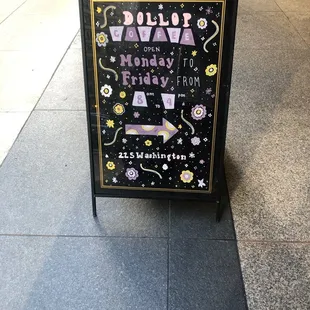 DOLLOP
COFFEE
OPEN
Monday TO
Friday FROM
8 AM TO 4 PM
22 S Washington